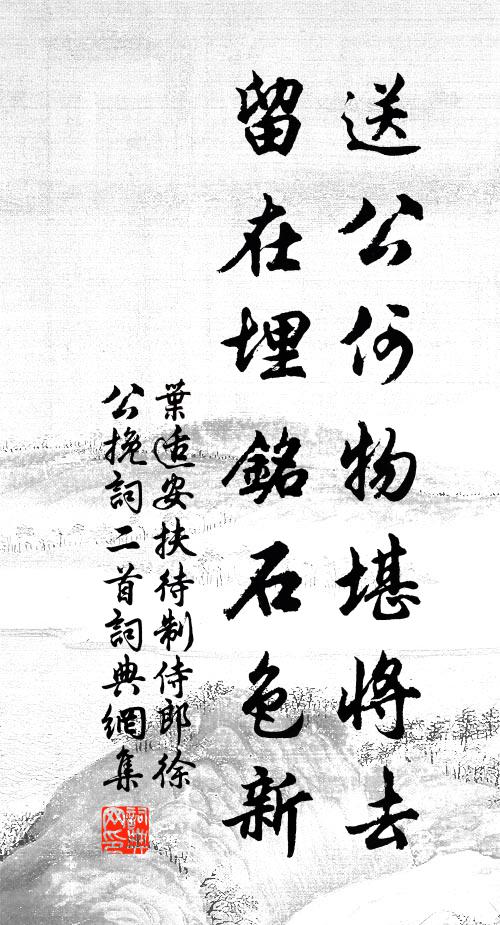 送公何物堪將去
留在埋銘石色新
葉適安扶待制侍郎徐
公挽詞二首詞典網集